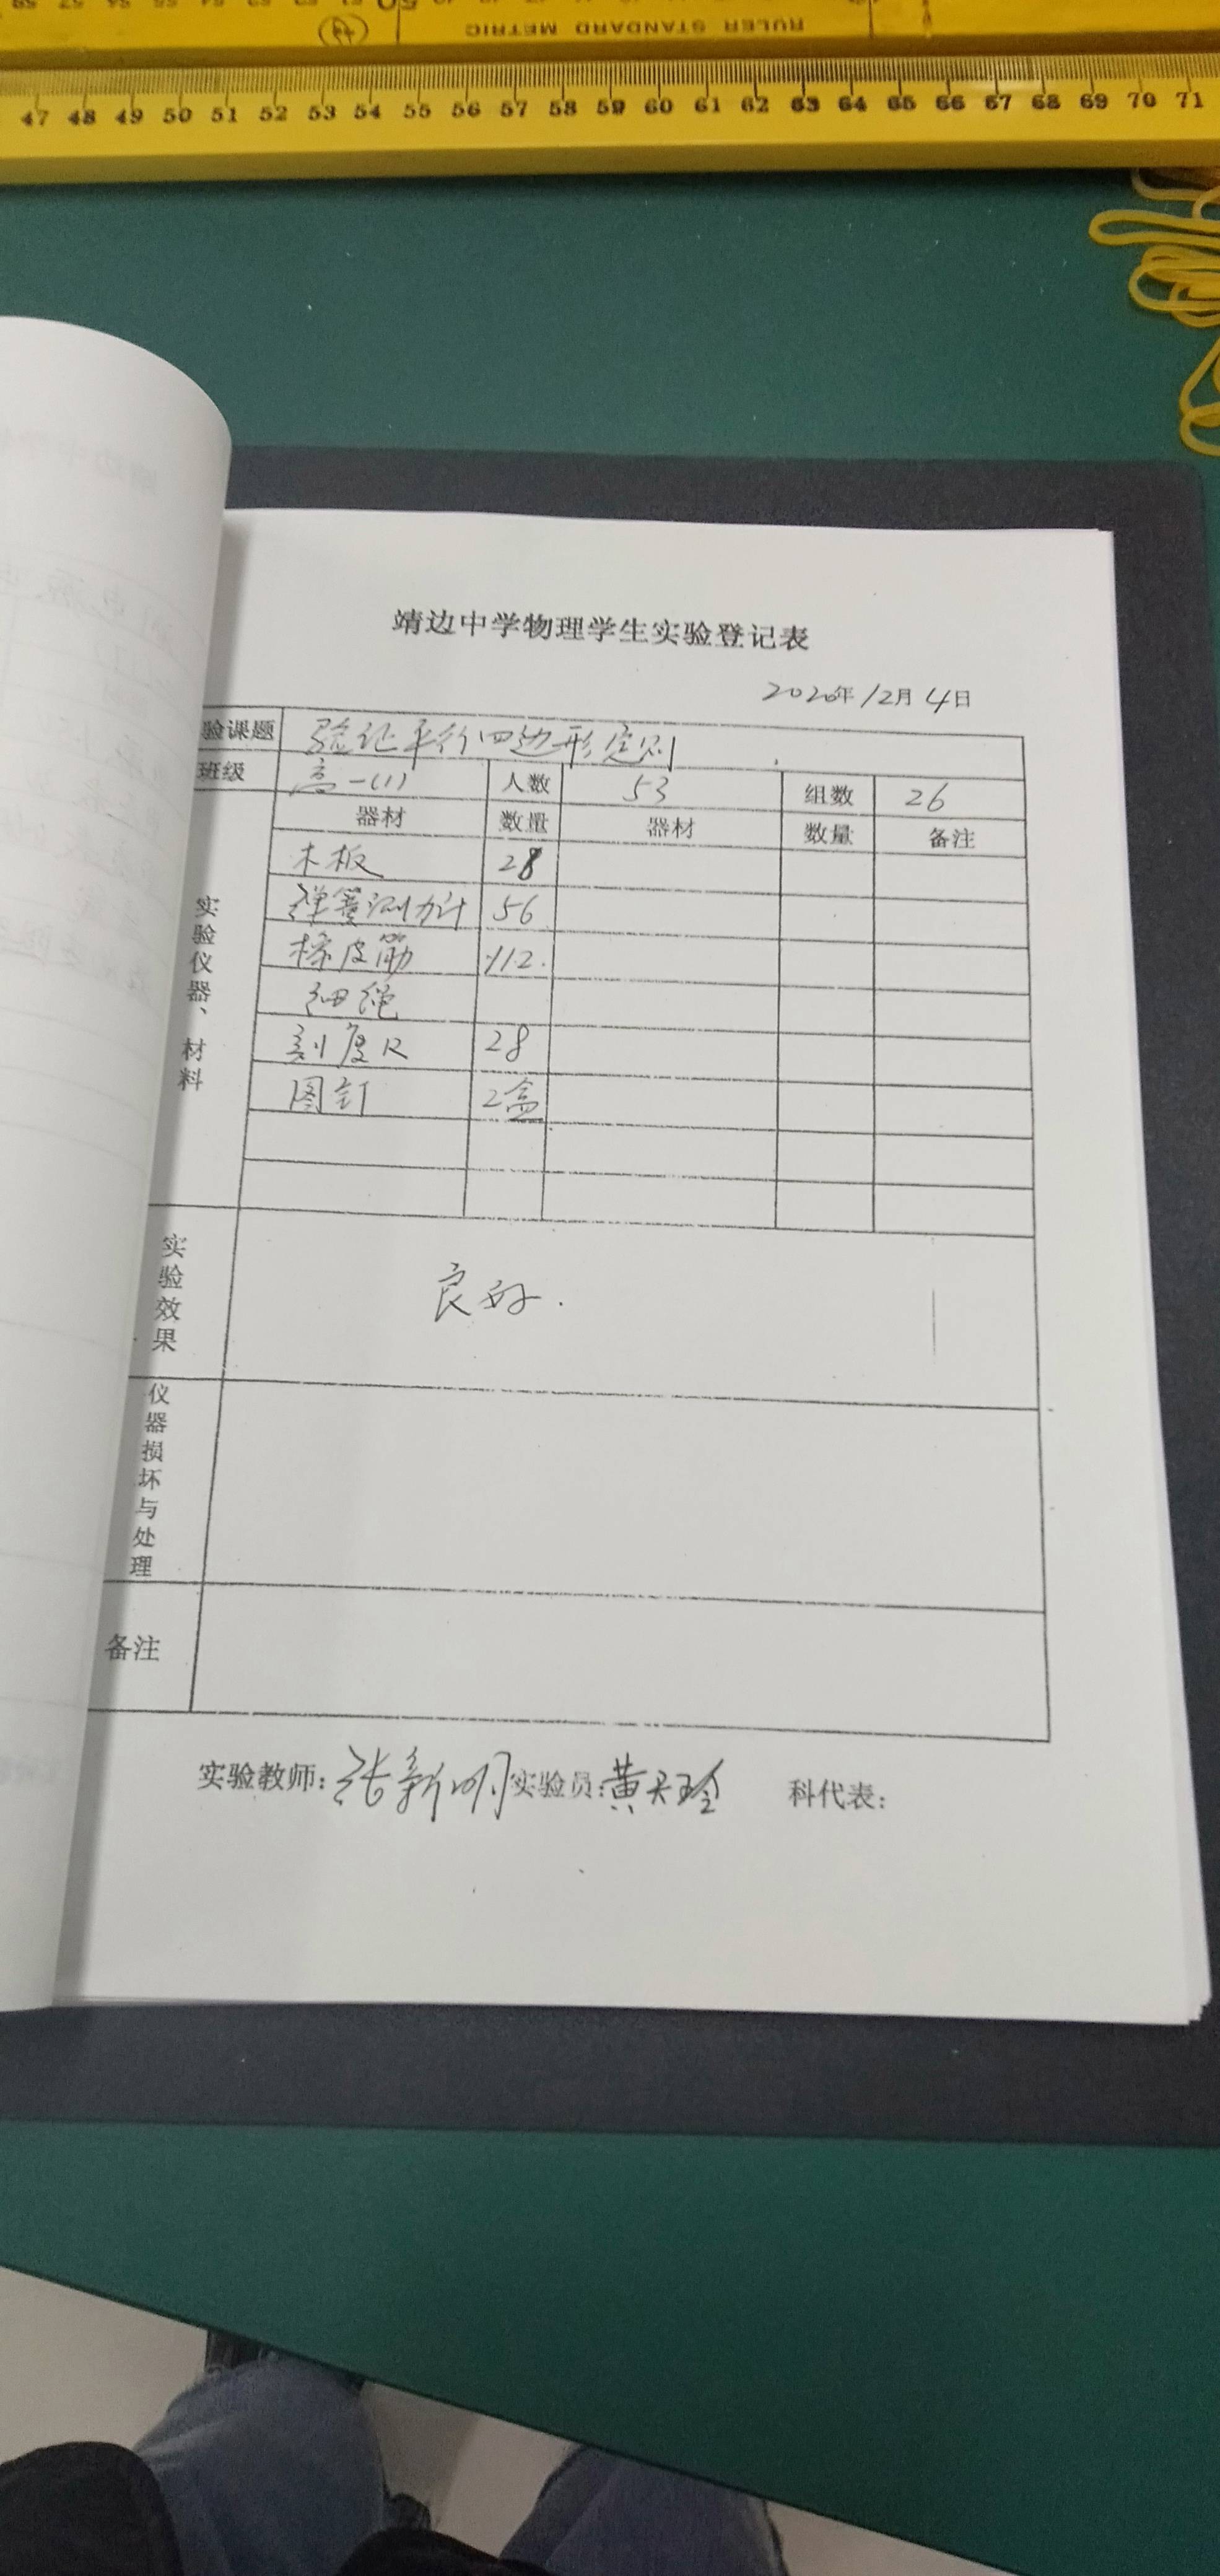 RULER STANDARD METRIC
47 48 49 50 51 52 53 54 55 56 57 58 59 60 61 62 63 64 65 66 67 68 69 70 71
靖边中学物理学生实验登记表
2020年12月4日
验课题 验证平行四边形定则
班级 高一(1) 人数 53 组数 26
实验仪器、材料
器材 数量 器材 数量 备注
木板 28
弹簧测力计 56
橡皮筋 112.
细绳
刻度尺 28
图钉 2盒
实验效果 良好.
仪器损坏与处理
备注
实验教师: 张新明 实验员: 黄天玲 科代表: